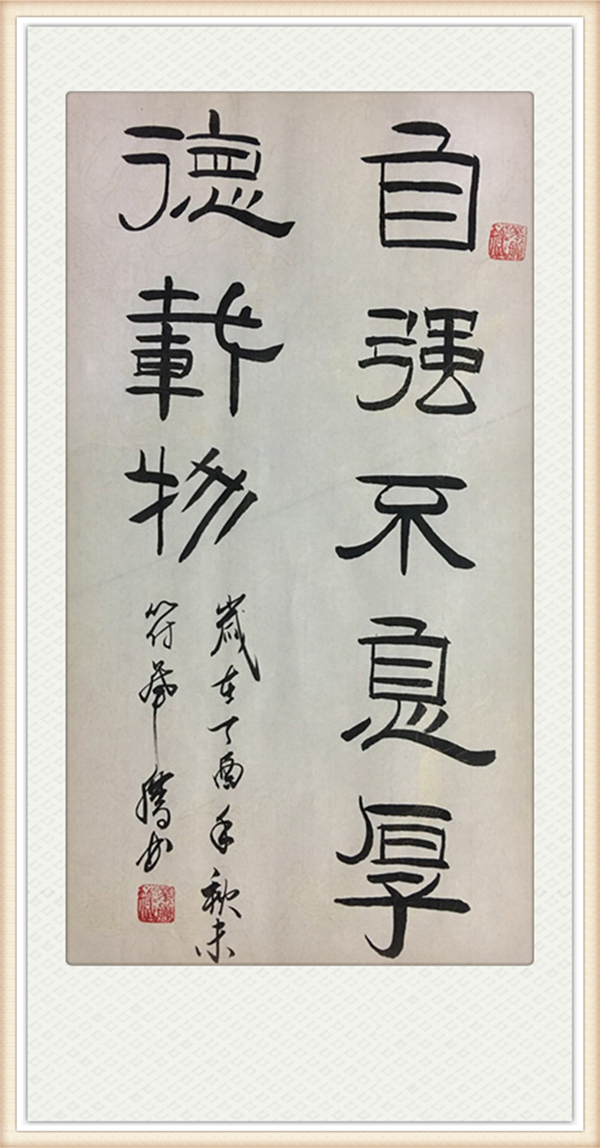 自强不息厚
德載物
歲在丁酉年秋末
符華騰書